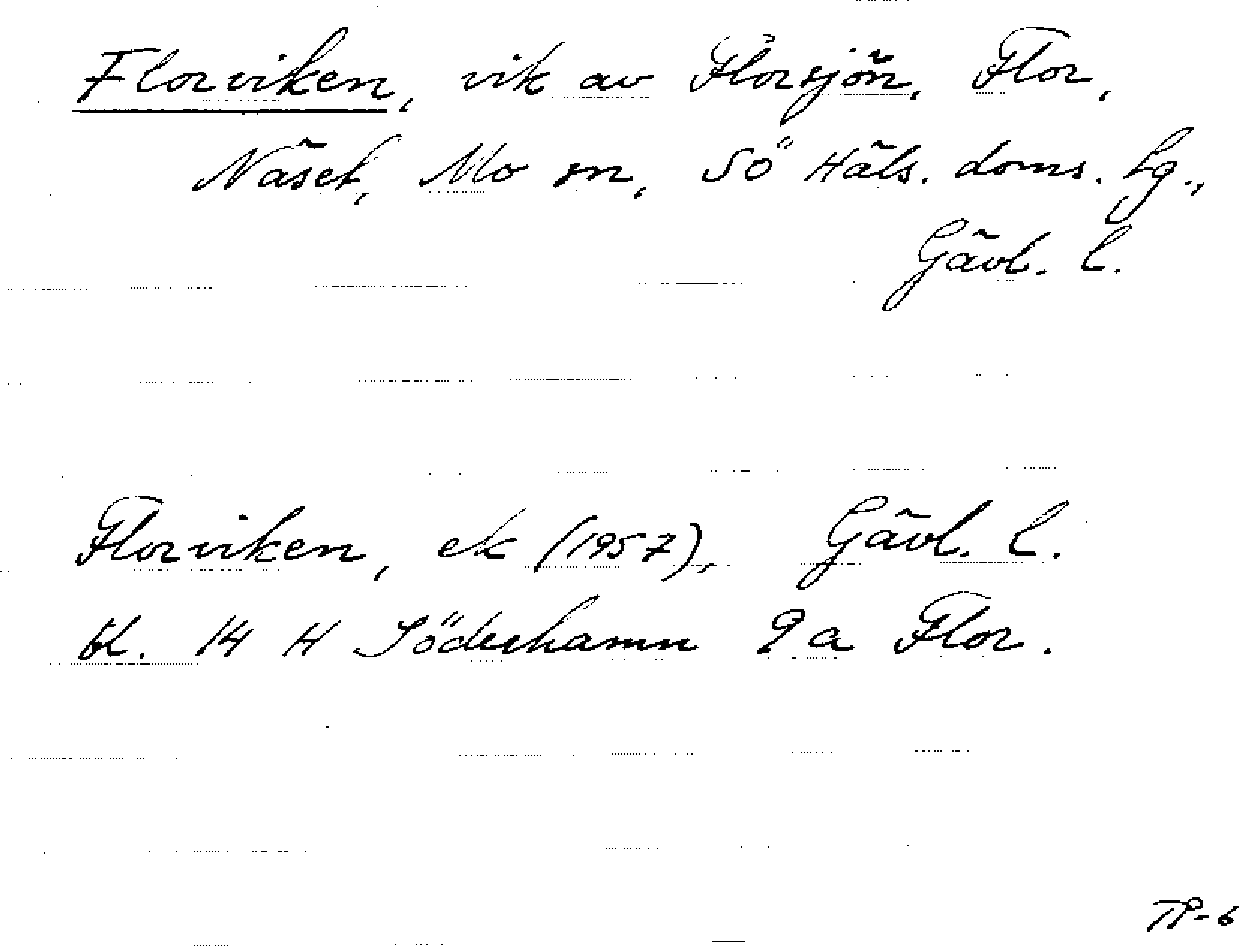 Florviken, vik av Florsjön, Flor,
Näset, Mo sn, Sö Häls. doms. hg.,
Gävl. l.
Florviken, ek (1957), Gävl. l.
bl. 14 H Söderhamn 9 a Flor.
TP-6